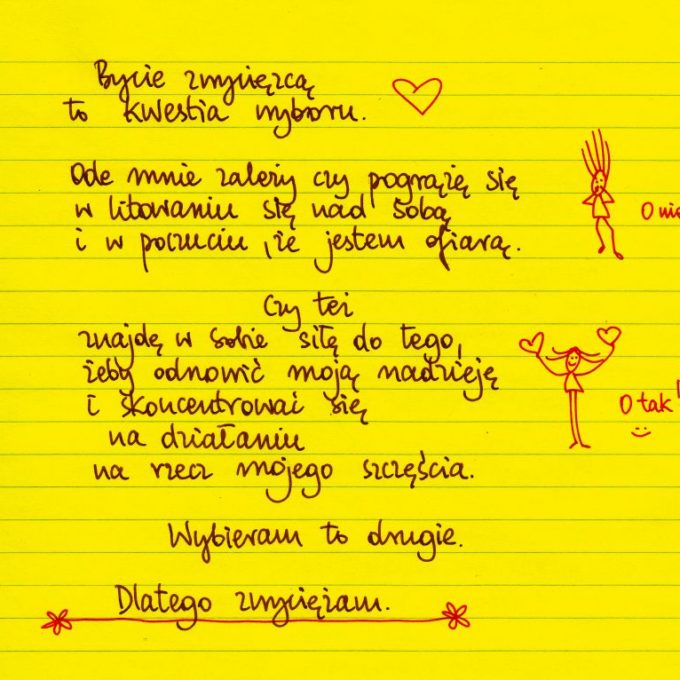 Bycie zwycięzcą
to kwestia wyboru.
Ode mnie zależy czy pogrążę się
w litowaniu się nad sobą
i w poczuciu, że jestem ofiarą.
O nie
Czy też
znajdę w sobie siłę do tego,
żeby odnowić moją nadzieję
i skoncentrować się
na działaniu
na rzecz mojego szczęścia.
O tak!
Wybieram to drugie.
Dlatego zwyciężam.